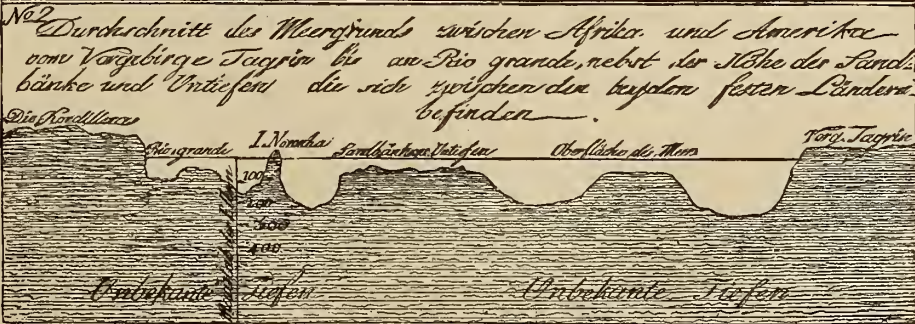 No 2
Durchschnitt des Meergrunds zwischen Afrika und Amerika
vom Vorgebirge Tagrin bis an Rio grande, nebst der Höhe der Sand=
bänke und Untiefen die sich zwischen den beyden festen Ländern
befinden.
Die Kordilleras
Rio grande
I. Noronha
Sandbänke u. Untiefen
Oberfläche des Meers
Vorg. Tagrin
100
200
300
400
Maasstab der
Unbekante Tiefen
Unbekante Tiefen